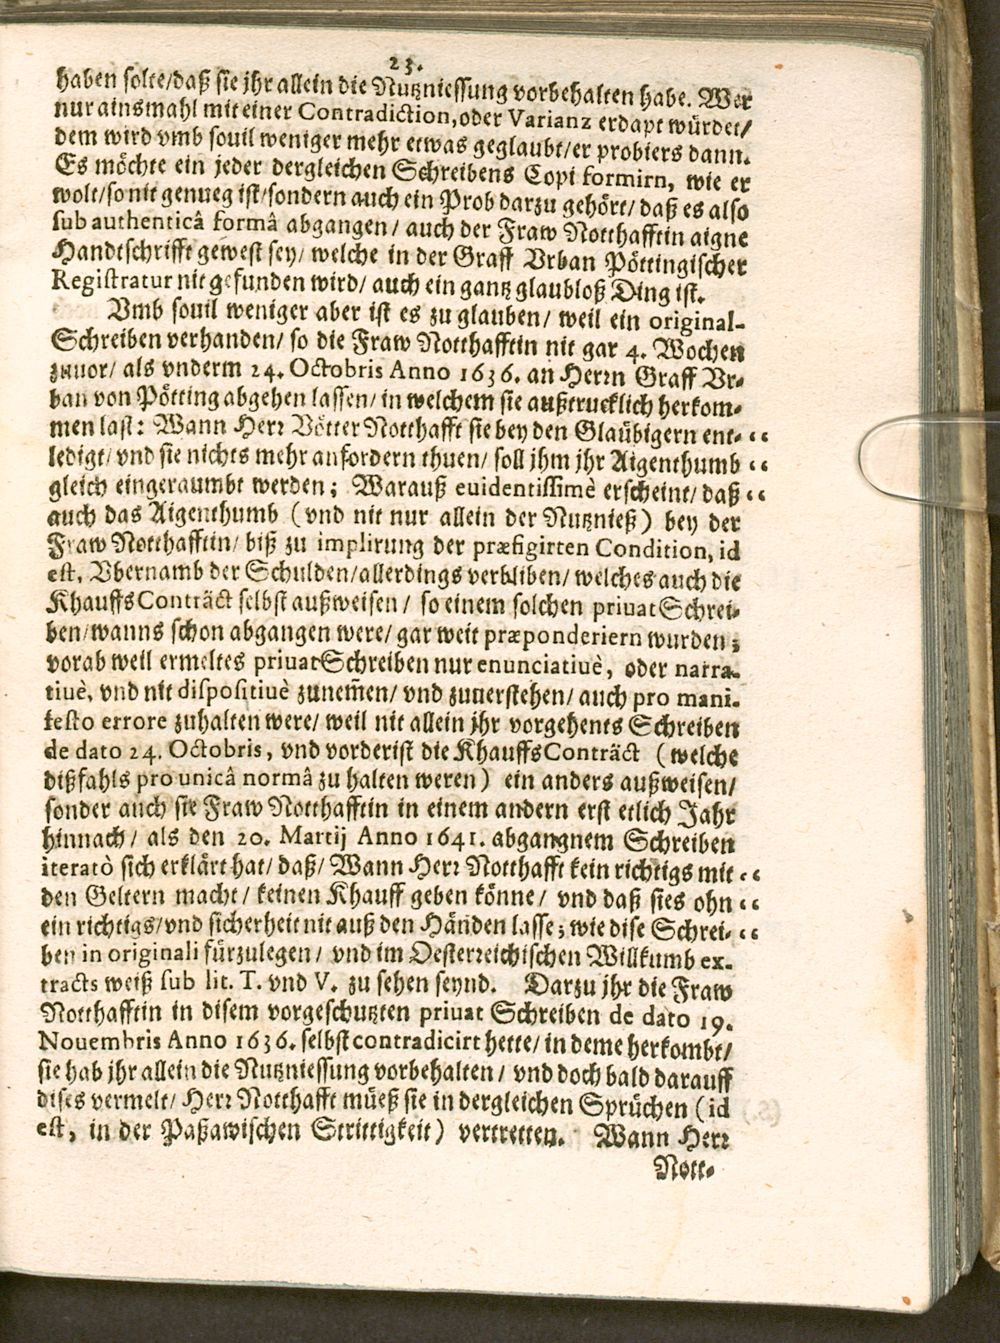 23.
haben solte/daß sie jhr allein die Nutzniessung vorbehalten habe. Wer
nur ainsmahl mit einer Contradiction, oder Varianz erdapt würdet/
dem wird vmb souil weniger mehr etwas geglaubt/er probiers dann.
Es möchte ein jeder dergleichen Schreibens Copi formirn, wie er
wolt/so nit genueg ist/sondern auch ein Prob darzu gehört/ daß es also
sub authenticâ formâ abgangen/ auch der Fraw Notthafftin aigne
Handtschrifft gewest sey/ welche in der Graff Vrban Pöttingischer
Registratur nit gefunden wird/ auch ein gantz glaubloß Ding ist.
Vmb souil weniger aber ist es zu glauben/ weil ein original-
Schreiben verhanden/ so die Fraw Notthafftin nit gar 4. Wochen
zuuor/ als vnderm 24. Octobris Anno 1636. an Herrn Graff Vr-
ban von Pötting abgehen lassen/ in welchem sie außtrucklich herkom-
men last: Wann Herr Vötter Notthafft sie bey den Glaübigern ent- “
ledigt/ vnd sie nichts mehr anfordern thuen/ soll jhm jhr Aigenthumb “
gleich eingeraumbt werden; Warauß euidentissimè erscheint/ daß “
auch das Aigenthumb (vnd nit nur allein der Nutznieß) bey der
Fraw Notthafftin/ biß zu implirung der præfigirten Condition, id
est, Vbernamb der Schulden/allerdings verbliben/ welches auch die
KhauffsConträct selbst außweisen/ so einem solchen priuatSchrei-
ben/wanns schon abgangen were/ gar weit præponderiern wurden;
vorab weil ermeltes priuatSchreiben nur enunciatiuè, oder narra-
tiuè, vnd nit dispositiuè zunem̃en/ vnd zuuerstehen/ auch pro mani-
festo errore zuhalten were/ weil nit allein jhr vorgehents Schreiben
de dato 24. Octobris, vnd vorderist die KhauffsConträct (welche
dißfahls pro unicâ normâ zu halten weren) ein anders außweisen/
sonder auch sie Fraw Notthafftin in einem andern erst etlich Jahr
hinnach/ als den 20. Martij Anno 1641. abgangnem Schreiben
iteratò sich erklärt hat/ daß/ Wann Herr Notthafft kein richtigs mit “
den Geltern macht/ keinen Khauff geben könne/ vnd daß sies ohn “
ein richtigs/vnd sicherheit nit auß den Händen lasse; wie dise Schrei- “
ben in originali fürzulegen/ vnd im Oesterreichischen Willkumb ex-
tracts weiß sub lit. T. vnd V. zu sehen seynd. Darzu jhr die Fraw
Notthafftin in disem vorgeschutzten priuat Schreiben de dato 19.
Nouembris Anno 1636. selbst contradicirt hette/ in deme herkombt/
sie hab jhr allein die Nutzniessung vorbehalten/ vnd doch bald darauff
dises vermelt/ Herr Notthafft müeß sie in dergleichen Sprüchen (id
est, in der Paßawischen Strittigkeit) vertretten. Wann Herr
Nott-